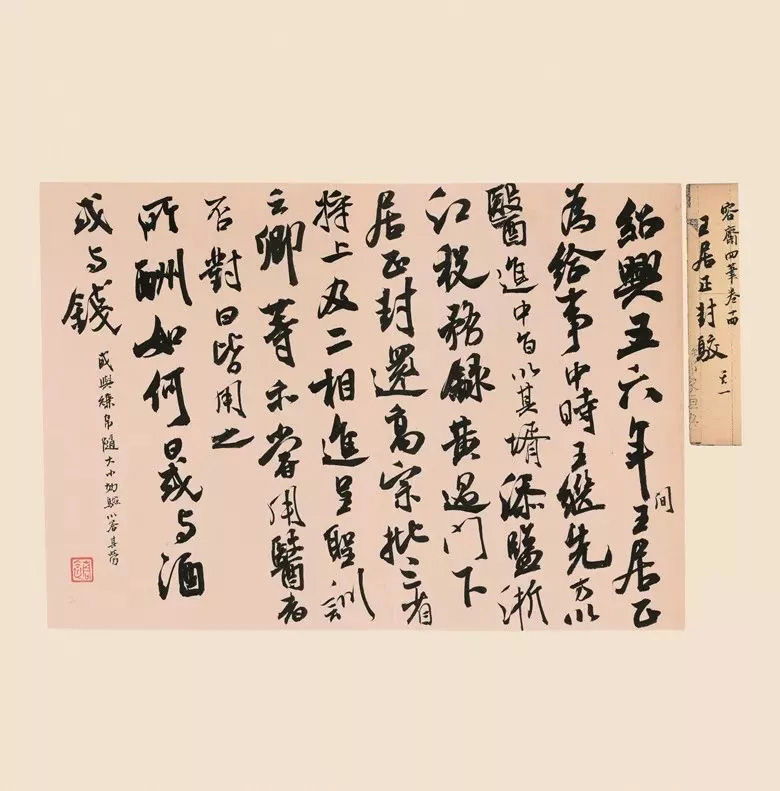 容齋四筆卷十四
王居正封駁
紹興五六年間王居正
為給事中時王繼先方以
醫進中旨以其壻添監浙
江稅務録黃過门下
居正封還高宗批三省
將上及二相進呈聖訓
云卿等亦嘗用醫者
否對曰皆用之
所酬如何曰或与酒
或与錢
或與縑帛隨大小効驗以答其勞